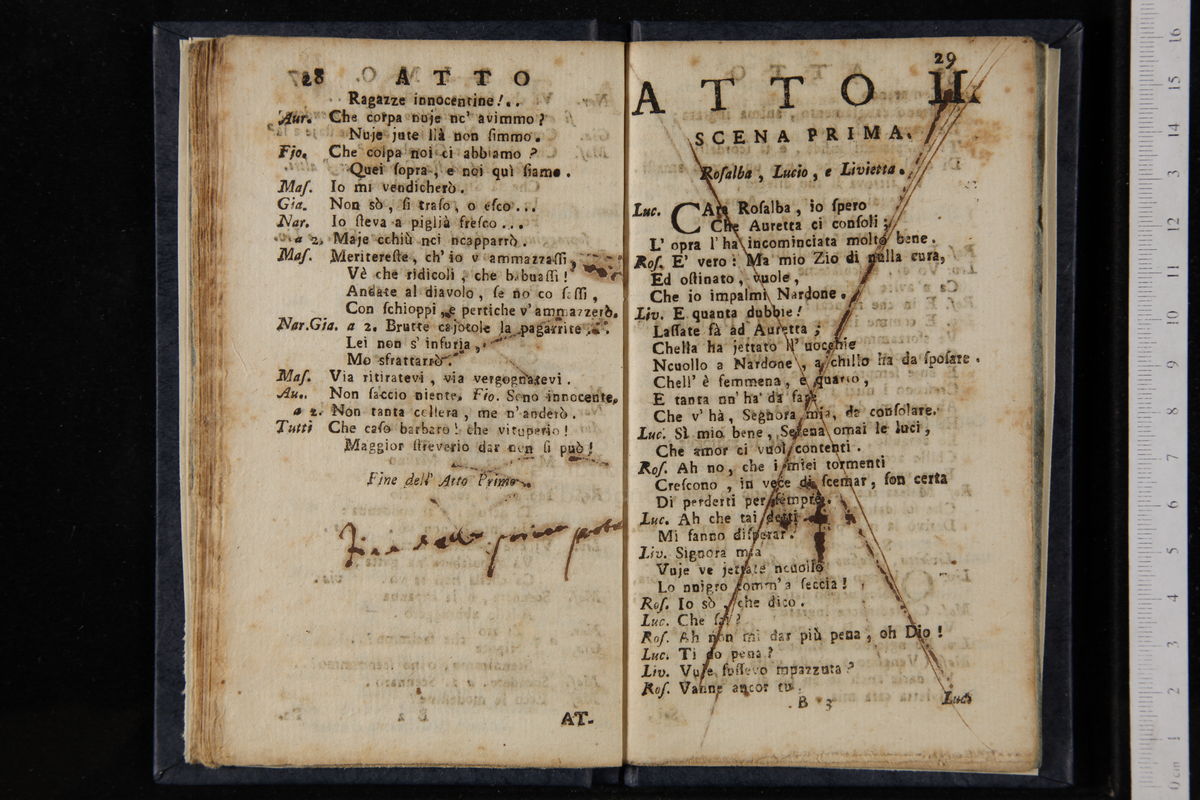 28 ATTO
Ragazze innocentine!..
Aur. Che corpa nuje nc' avimmo?
Nuje jute llà non ſimmo.
Fio. Che colpa noi ci abbiamo?
Quei ſopra, e noi quì ſiamo.
Maſ. Io mi vendicherò.
Gia. Non sò, ſi traſo, o eſco...
Nar. Io ſteva a piglià freſco...
a 2. Maje cchiù nci ncapparrò.
Maſ. Meritereſte, ch' io v' ammazzaſſi,
Vè che ridicoli, che babuaſſi!
Andate al diavolo, ſe no co ſaſſi,
Con ſchioppi, e pertiche v' ammazzerò.
Nar.Gia. a 2. Brutte cajotole la pagarrite...
Lei non s' infuria,
Mo sfrattarrò.
Maſ. Via ritiratevi, via vergognatevi.
Au. Non faccio niente. Fio. Sono innocente.
a 2. Non tanta collera, me n' anderò.
Tutti Che caſo barbaro! che vituperio!
Maggior ſtreverio dar non ſi può!
Fine dell' Atto Primo.
Fine della prima parte
B 2
AT-
29
ATTO II.
SCENA PRIMA.
Roſalba, Lucio, e Livietta.
Luc. CAra Roſalba, io ſpero
Che Auretta ci conſoli;
L' opra l' ha incominciata molto bene.
Roſ. E' vero: Ma mio Zio di nulla cura,
Ed oſtinato, vuole,
Che io impalmi Nardone.
Liv. E quanta dubbie!
Laſſate fà ad Auretta;
Cheſſa ha jettato ll' uocchie
Ncuollo a Nardone, a chillo ha da ſpoſare.
Chell' è femmena, e quanto,
E tanta nn' ha da fare
Che v' hà, Segnora mia, da conſolare.
Luc. Sì mio bene, Serena omai le luci,
Che amor ci vuol contenti.
Roſ. Ah no, che i miei tormenti
Creſcono, in vece di ſcemar, ſon certa
Di perderti per ſempre.
Luc. Ah che tai detti
Mi fanno diſperar.
Liv. Signora mia
Vuje ve jettate ncuollo
Lo nnigro comm' a ſeccia!
Roſ. Io sò, che dico.
Luc. Che ſai?
Roſ. Ah non mi dar più pena, oh Dio!
Luc. Ti do pena?
Liv. Vuje fuſſevo mpazzuta?
Roſ. Vanne ancor tu.
B 3
Luc.